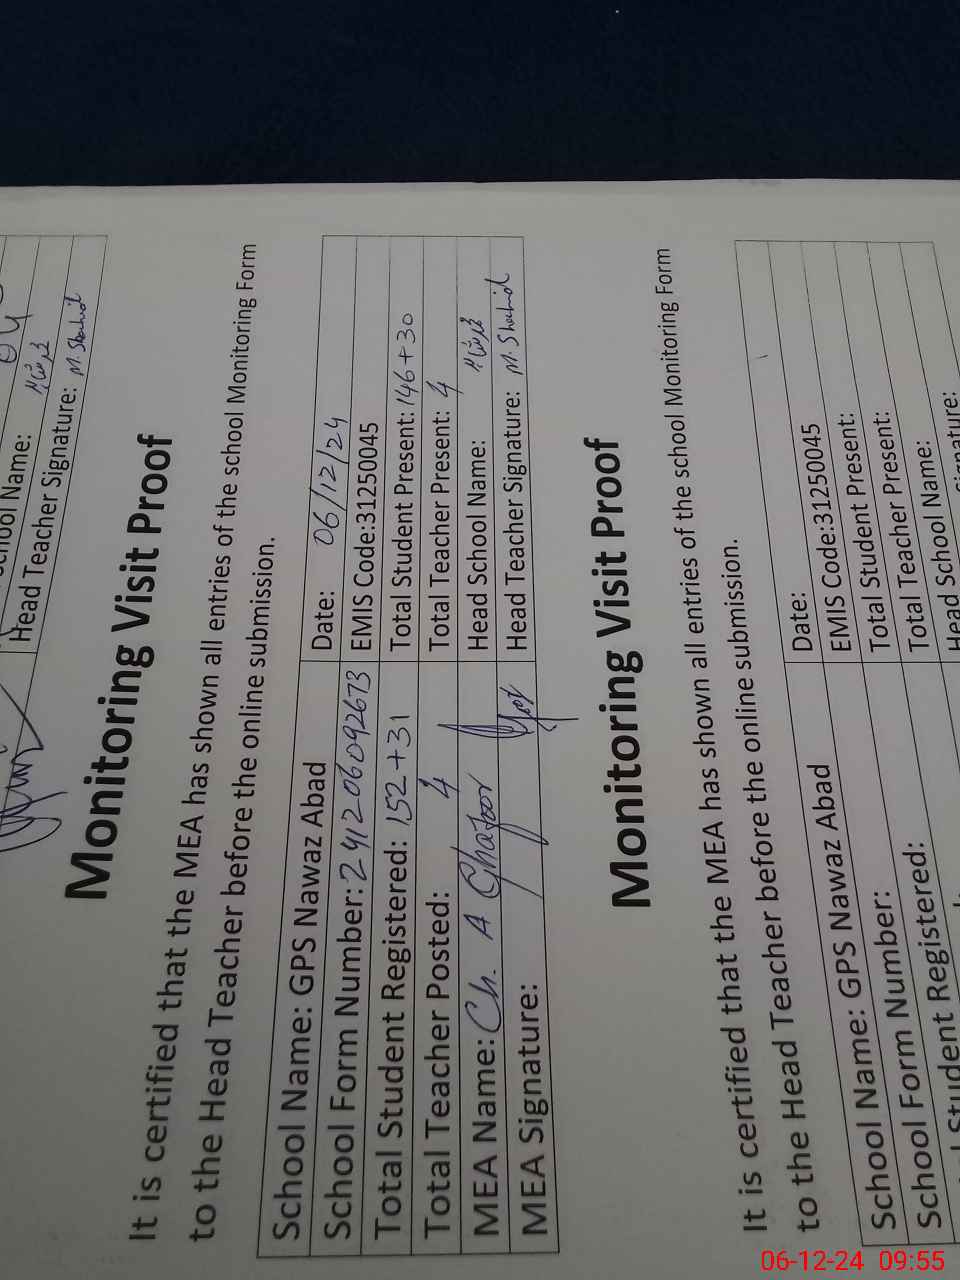 School Name:
Head Teacher Signature: M. Shahid
Monitoring Visit Proof
It is certified that the MEA has shown all entries of the school Monitoring Form
to the Head Teacher before the online submission.
School Name: GPS Nawaz Abad Date: 06/12/24
School Form Number: 241206092673 EMIS Code:31250045
Total Student Registered: 152+31 Total Student Present: 146+30
Total Teacher Posted: 4 Total Teacher Present: 4
MEA Name: Ch. A Ghafoor Head School Name:
MEA Signature: Head Teacher Signature: M. Shahid
Monitoring Visit Proof
It is certified that the MEA has shown all entries of the school Monitoring Form
to the Head Teacher before the online submission.
School Name: GPS Nawaz Abad Date:
School Form Number: EMIS Code:31250045
Student Registered: Total Student Present:
Total Teacher Present:
Head School Name:
Signature:
06-12-24 09:55